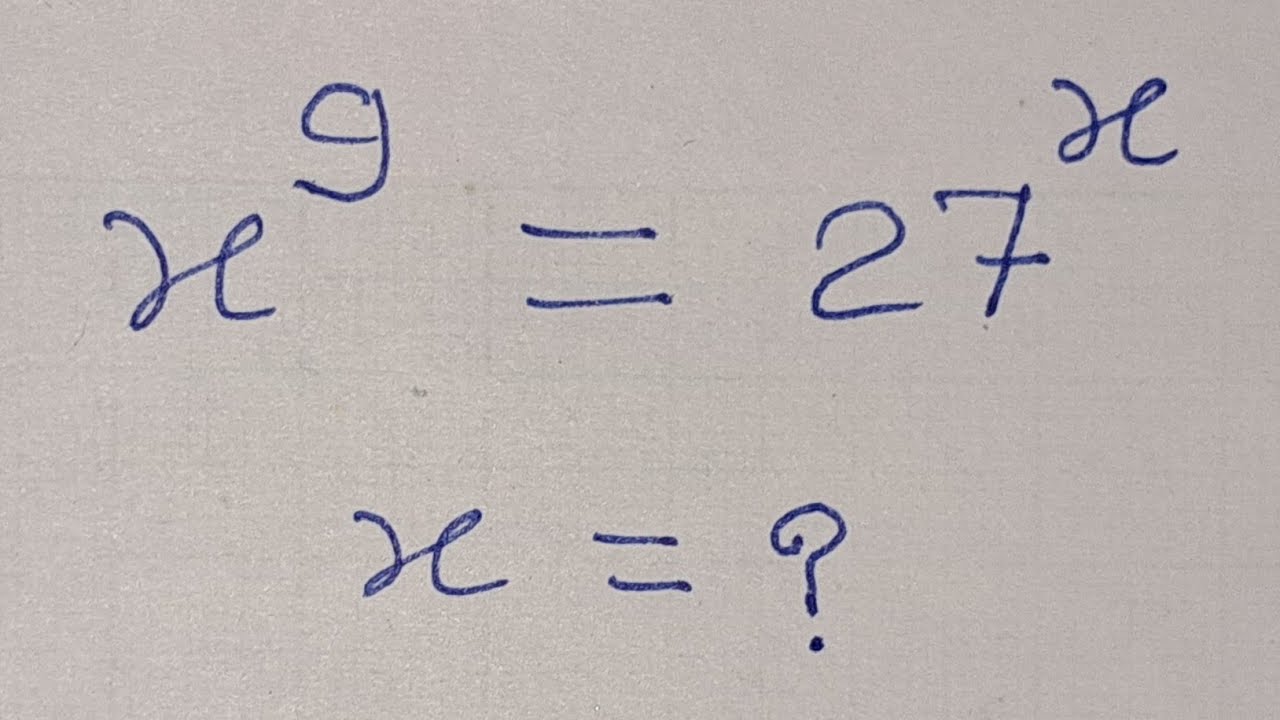 x⁹ = 27ˣ
x = ?